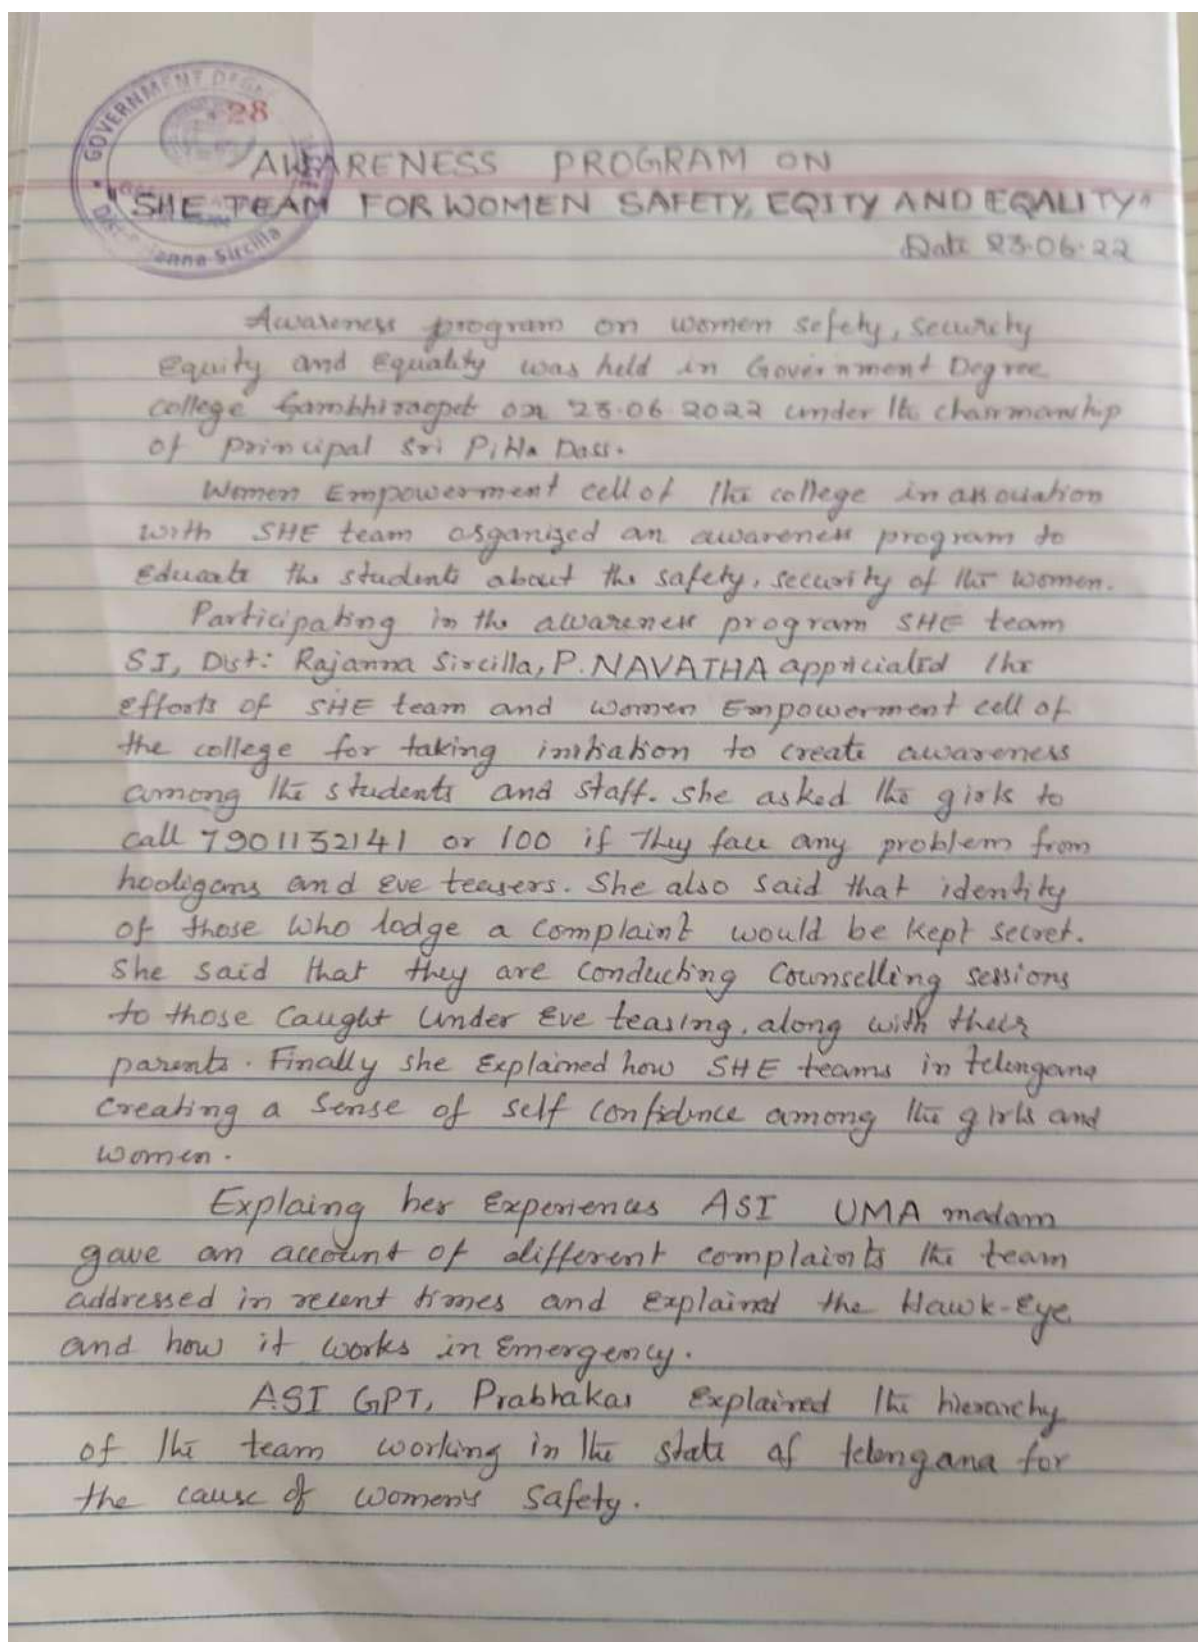 GOVERNMENT DEG
28
AWARENESS PROGRAM ON
"SHE TEAM FOR WOMEN SAFETY, EQITY AND EQALITY"
Date 23.06.22
Awareness program on women sefety, security
equity and equality was held in Government Degree
college Gambhiraopet on 23.06.2022 under the chairmanship
of principal Sri Pitta Dass.
Women Empowerment cell of the college in association
with SHE team organized an awareness program to
educate the students about the safety, security of the women.
Participating in the awareness program SHE team
SI, Dist: Rajanna Sircilla, P. NAVATHA appriciated the
efforts of SHE team and women Empowerment cell of
the college for taking initiation to create awareness
among the students and staff. She asked the girls to
call 7901132141 or 100 if they face any problem from
hooligans and eve teasers. She also said that identity
of those who lodge a complaint would be kept secret.
She said that they are conducting counselling sessions
to those caught under eve teasing, along with their
parents. Finally she explained how SHE teams in telengana
creating a sense of self confidence among the girls and
women.
Explaing her experiences ASI UMA madam
gave an account of different complaints the team
addressed in recent times and explained the Hawk-Eye
and how it works in emergency.
ASI GPT, Prabhakar explained the hierarchy
of the team working in the state of telengana for
the cause of women's safety.